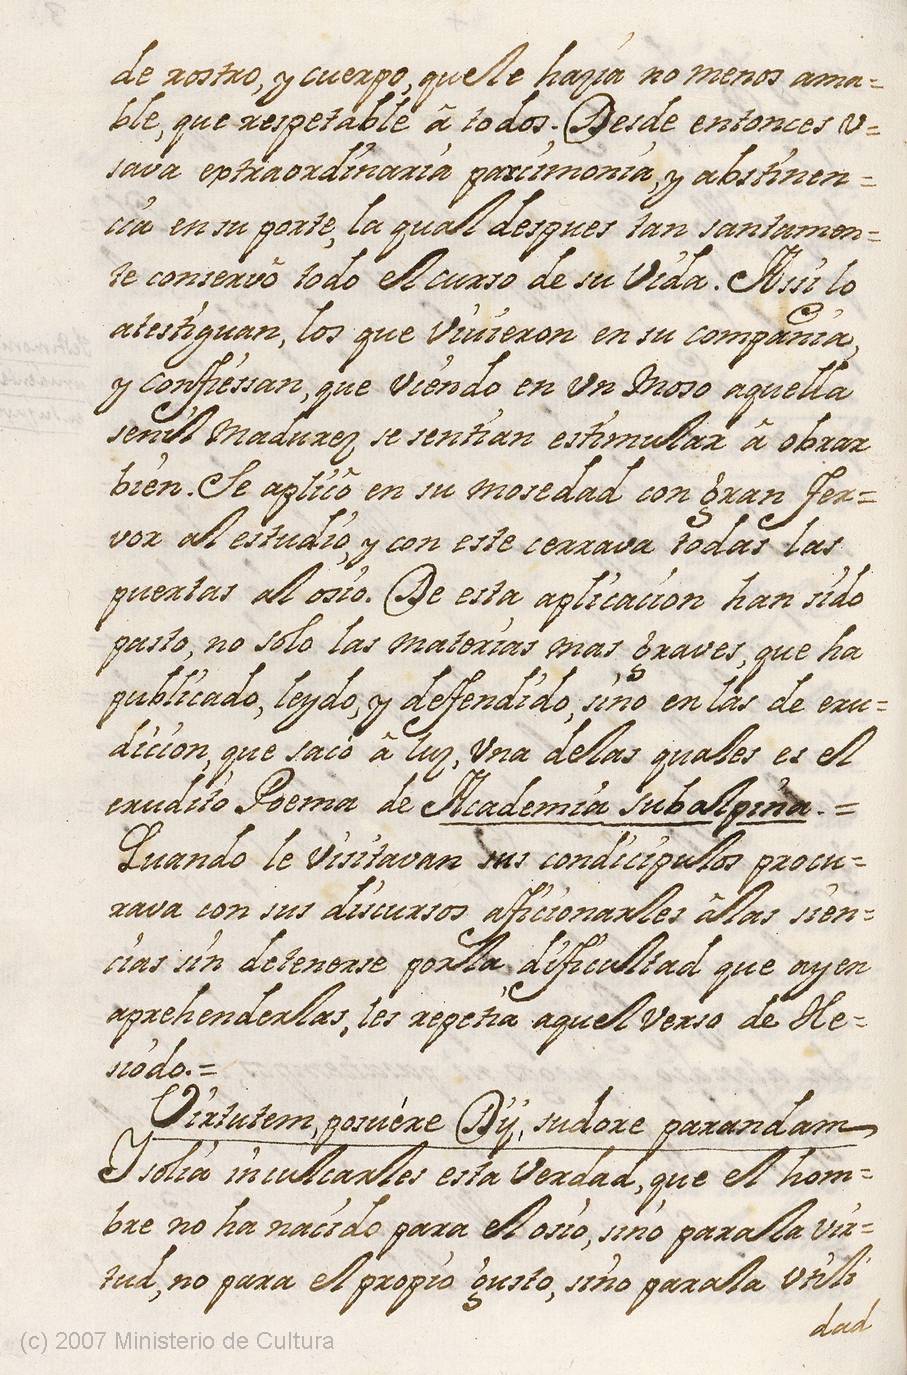 de rostro, y cuerpo, que le hazia no menos ama=
ble, que respetable â todos. Desde entonces v=
sava extraordinaria parcimonia, y abstinen=
cia en su porte, la qual despues tan santamen=
te conservô todo el curso de su Vida. Assi lo
atestiguan, los que Vivieron en su compañia,
y confiessan, que Viendo en Vn Moso aquella
senil Madurez se sentian estimular â obrar
bien. Se aplicô en su mosedad con gran fer=
vor al estudio, y con este cerrava todas las
puertas al osio. De esta aplicacion han sido
pasto, no solo las materias mas graves, que ha
publicado, leydo, y deffendido, sino en las de eru=
dicion, que saco â luz, Vna delas quales es el
erudito Poema de Academia subalpina.=
Quando le Visitavan sus condicipulos procu=
rava con sus discursos afficionarles âlas sien=
cias sin detenerse por la difficultad que ay en
aprehenderlas, les repetia aquel Verso de He=
siodo.=
Virtutem, posuére Dÿ, sudore parandam
Y solia inculcarles esta Verdad, que el hom=
bre no ha nacido para el osio, sino para la Vir=
tud, no para el propio gusto, sino para la Vtili
dad
(c) 2007 Ministerio de Cultura